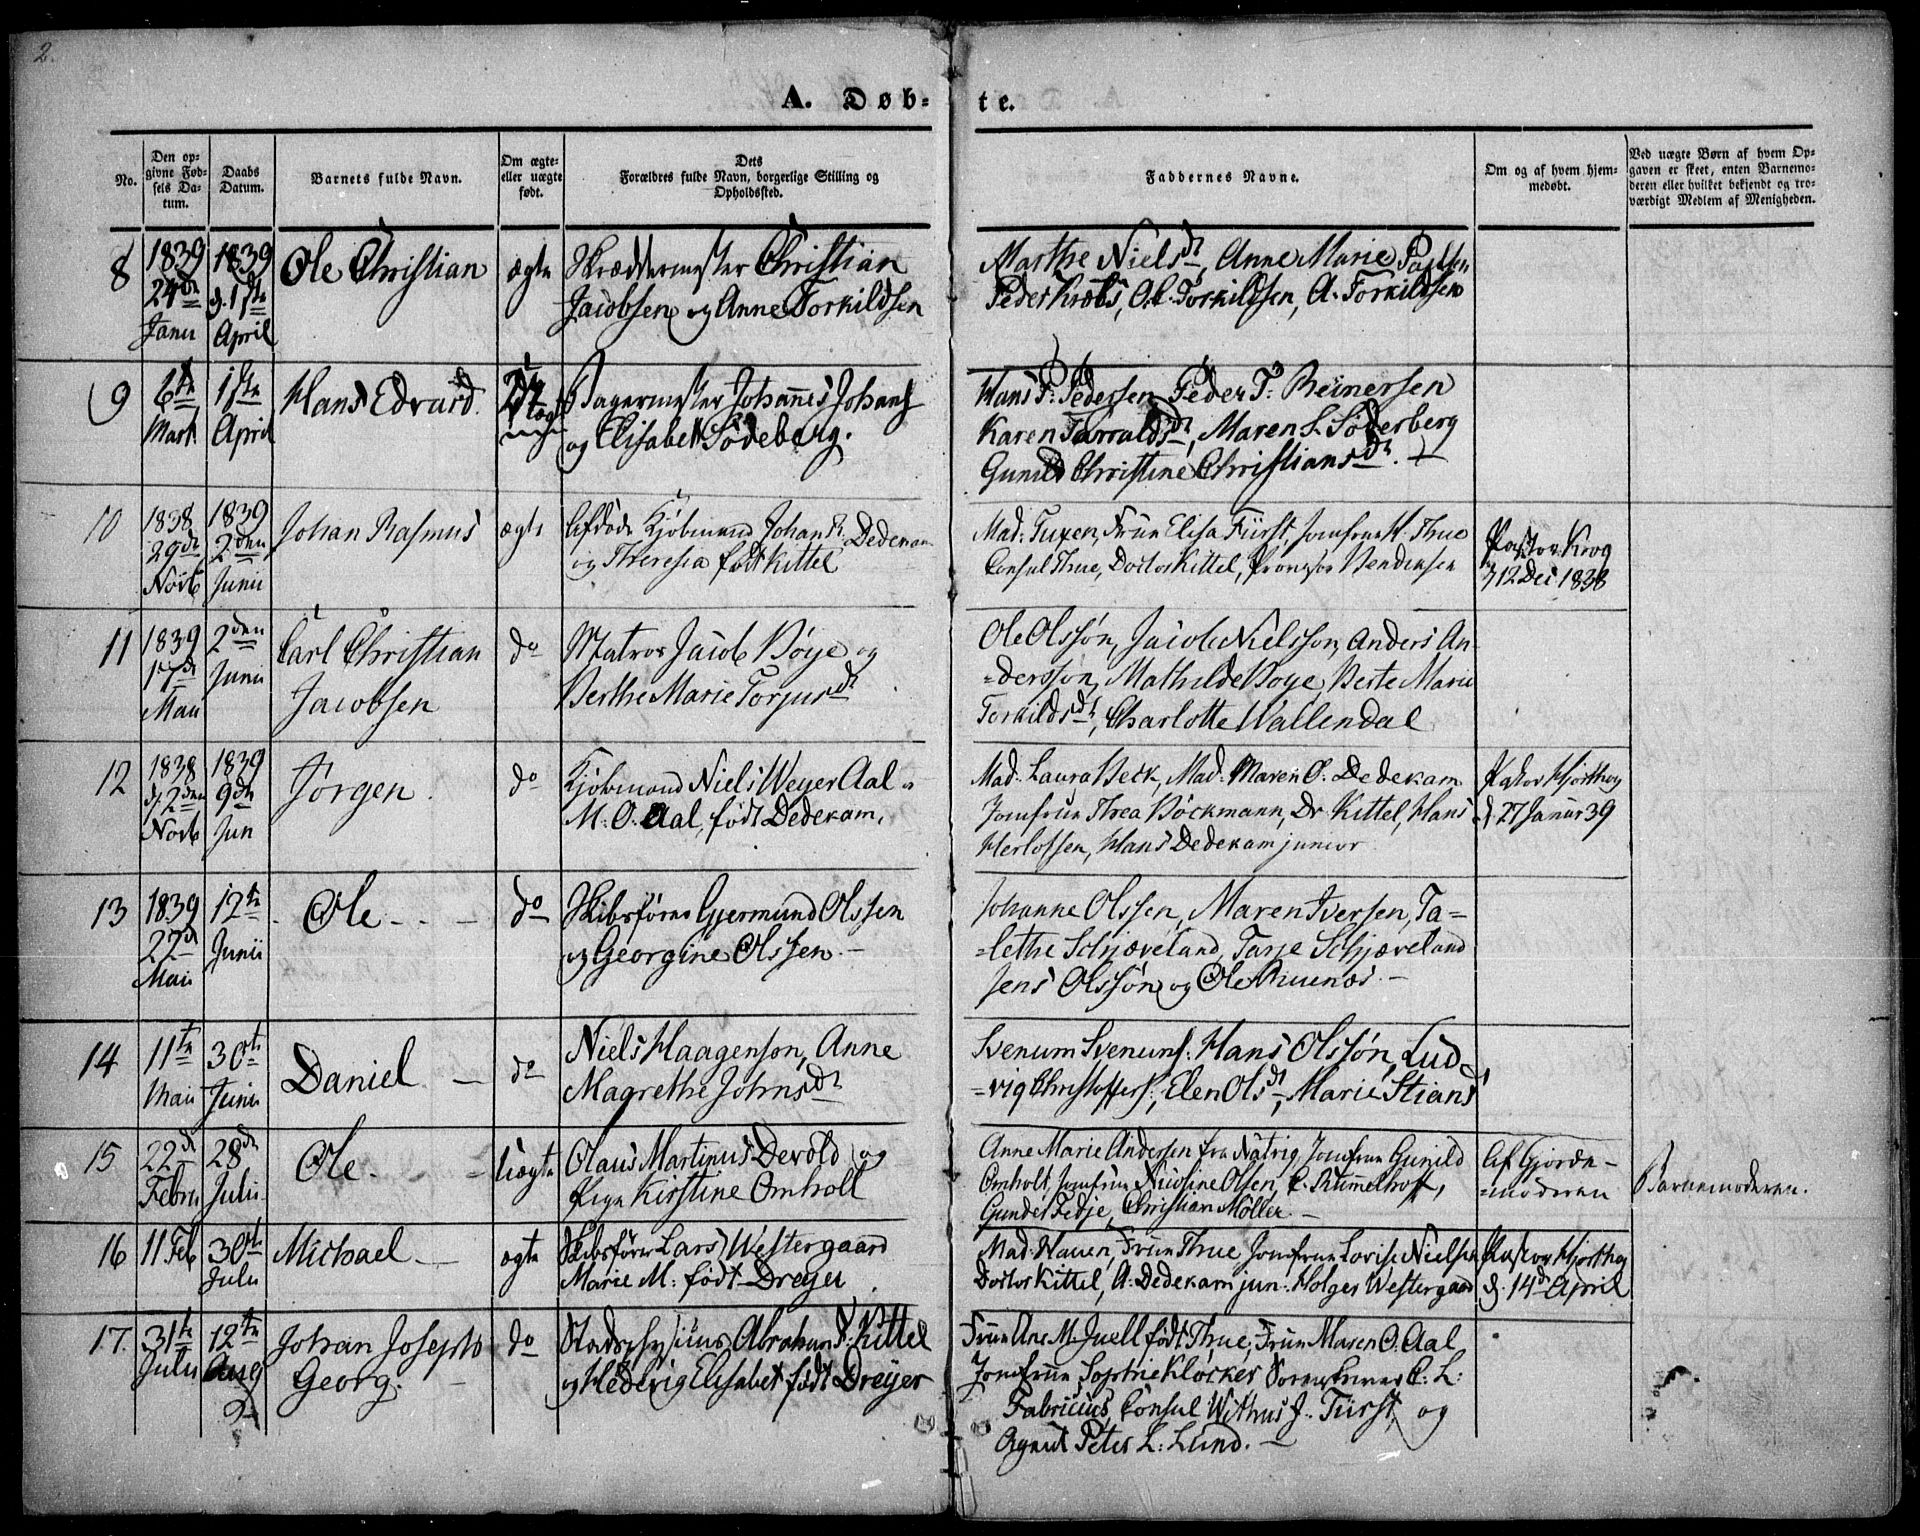 2.
A. Døb-
te.
No.
Den op-
givne Fød-
sels Da-
tum.
Daabs
Datum.
Barnets fulde Navn.
Om ægte-
eller uægte
født.
Dets
Forældres fulde Navn, borgerlige Stilling og
Opholdssted.
Faddernes Navne.
Om og af hvem hjem-
medøbt.
Ved uægte Børn af hvem Op-
gaven er skeet, enten Barnemo-
deren eller hvilket bekjendt og tro-
værdigt Medlem af Menigheden.
8
1839
24de
Janu
1839
d. 1ste
April
Ole Christian
ægte
Skræddermester Christian
Jacobsen og Anne Torkildsen
Marthe Nielsdt, Anne Marie
Peder Krebs, O. C. Torkildsen, A. Torkildsen
9
6te
Mart
1ste
April
Hans Edvard.
Bagermester Johannes Johans
og Elisabet Södeberg.
Hans P. Pedersen Peder T. Reimersen
Karen Tarraldsdt, Maren S. Söderberg
Gunild Christine Christiansdt.
10
1838
29de
Novb
1839
2den
Junii
Johan Rasmus
ægte
Afdöde Kjöbmand Johan R. Dedekam
og Theresia født Kittel
Mad. Tuxen, Frun Elisa Fürst, Jomfrun H. Thue
Consul Thue, Doctor Kittel,
Pastor Krog
12 Dec 1838
11
1839
17de
Mai
2den
Junii
Carl Christian
Jacobsen
do
Matros Jacob Böye og
Berthe Marie Torjusdt
Ole Olssön, Jacob Nielsson, Anders An-
=dersson, Mathilde Boye, Berte Marie
Torkildsdt, Charlotte Wallendal
12
1838
d. 2den
Novb
1839
9de
Jun
Jörgen.
do
Kjöbmand Niels Weyer Aal
M. O. Aal, født Dedekam.
Mad. Laura Beck, Mad. Maren O. Dedekam
Jomfrun Threa Böckmann, Dr Kittel, Hans
Herlofsen, Hans Dedekam junior
Pastor Hjorthog
d 27 Januar 39
13
1839
22de
Mai
12te
Junii
Ole
do
Skibsförer Gjermund Olssen
og Georgine Olssen.
Johanne Olssen, Maren Iversen, Ta-
=lethe Schjæveland, Tarje Schjæveland
Jens Olssön og Ole
14
11te
Mai
30te
Junii
Daniel
do
Niels Haagenson, Anne
Magrethe Johnsdt
Svenum Svenums. Hans Olssön, Lud-
=vig Christoffers., Elen Olsdt, Marie Stians
15
22de
Febru
28de
Julii
Ole
Uægte
Olaus Martinus Devold og
Pige Kirstine Omholt
Anne Marie Andersen fra Natrig, Jomfrun Gunild
Omholt, Jomfrun Nicoline Olsen, C. Rümelhoff,
Gunder Fedje, Christian Möller.
Af Gjorde-
=moderen
Barnemoderen.
16
11 Feb
30te
Julii
Michael
ægte
Skibsförer Lars Westergaard
Marie M. født Dreyer
Mad. Hauen, Frun Thue Jomfrun Lovise Nielsen
Doctor Kittel, A. Dedekam jun. Holger Westergaard
Pastor Hjorthog
d. 14de April
17.
31te
Julii
12te
Aug
Johan Joseph
Georg.
do
Stadsphysicus Abraham Kittel
og Hedevig Elisabet født Dreyer
Frun Ane M. Juell født Thue, Frun Maren O. Aal
Jomfrun Sophie Klöcker Sorenskriver C. L.
Fabricius, Consul Withus J. Fürst, og
Agent Peter L. Lund.